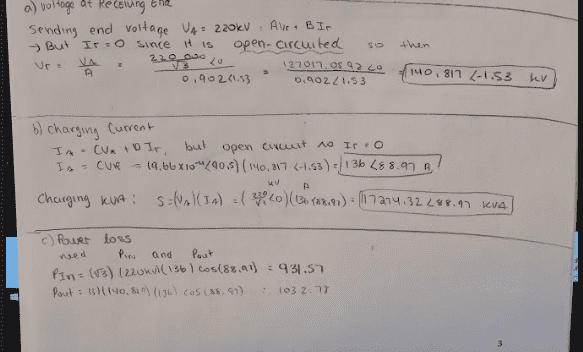 a) Voltage at Receiving End
Sending end voltage Vs = 220kV = AVr + BIr
→ But Ir = 0 since it is open-circuited so then
Vr = Vs/A = (220,000/√3 ∠0)/(0.902∠1.53) = (127017.0592∠0)/(0.902∠1.53) = 140,817 ∠-1.53 kV
b) Charging Current
Is = CVR + DIr, but open circuit so Ir = 0
Is = CVR = (9.66x10⁻⁴∠90.5)(140,817∠-1.53) = 136∠88.97 A
kV A
Charging kVA: S = (Vs)(Is) = (220/√3∠0)(136∠88.97) = 17274.32∠88.97 kVA
c) Power loss
need Pin and Pout
Pin = (√3)(220kV)(136) cos(88.97) = 931.57
Pout = (136) cos(88.97) = 1032.78
3